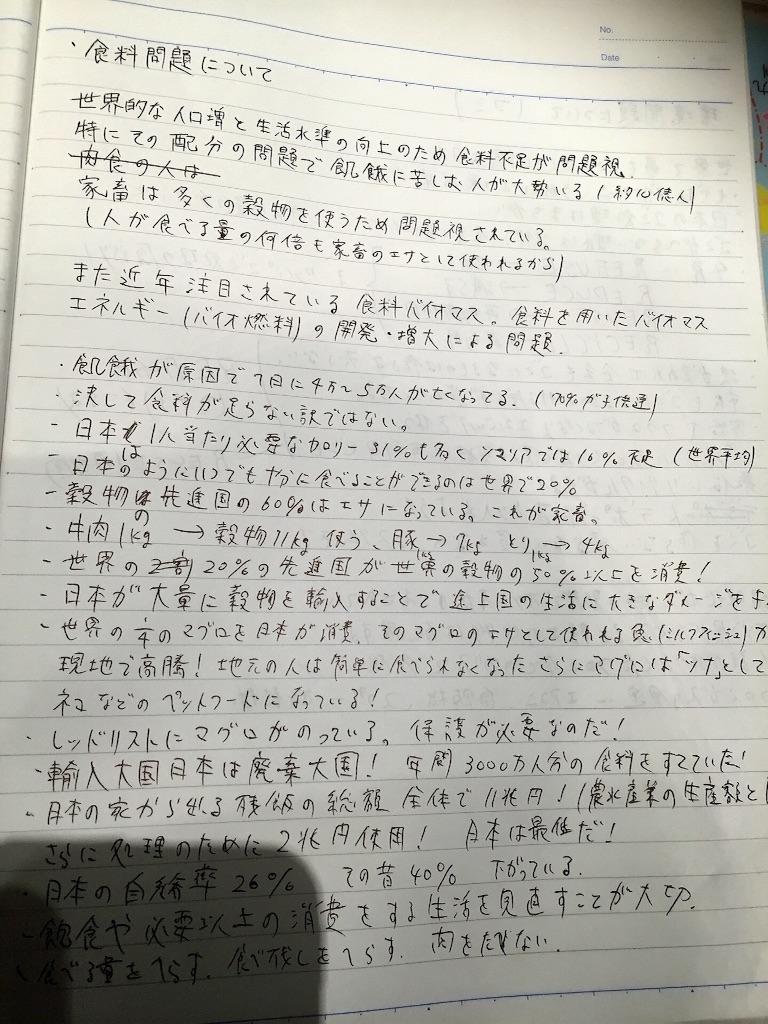 No.
Date
・食料問題について
世界的な人口増と生活水準の向上のため食料不足が問題視.
特にその配分の問題で飢餓に苦しむ人が大勢いる(約10億人)
肉食の人は
家畜は多くの穀物を使うため問題視されている。
(人が食べる量の何倍も家畜のエサとして使われるから)
また近年注目されている食料バイオマス。食料を用いたバイオマス
エネルギー(バイオ燃料)の開発・増大による問題.
・飢餓が原因で1日に4万〜5万人が亡くなってる.(70%が子供達)
・決して食料が足らない訳ではない。
- 日本は1人当たり必要なカロリー31%も多くソマリアでは16%不足(世界平均)
- 日本のようにいつでも十分に食べることができるのは世界で20%
- 穀物の先進国の60%はエサになっている。これが家畜。
- 牛肉1kg → 穀物11kg使う、豚1kg→7kg とり1kg→4kg
- 世界の2割20%の先進国が世界の穀物の50%以上を消費!
- 日本が大量に穀物を輸入することで途上国の生活に大きなダメージを
- 世界の のマグロを日本が消費. そのマグロのエサとして使われる魚(ミルクフィッシュ)が
現地で高騰!地元の人は簡単に食べられなくなった さらにマグロは「ツナ」として
ネコなどのペットフードになっている!
・レッドリストにマグロがのっている。保護が必要なのだ!
・輸入大国日本は廃棄大国! 年間3000万人分の食料をすてていた!
・日本の家から出る残飯の総額 全体で11兆円!(農水産業の生産額と
さらに処理のために2兆円使用! 日本は最低だ!
・日本の自給率26% その昔40% 下がっている.
- 飽食や必要以上の消費をする生活を見直すことが大切.
食べる量をへらす. 食べ残しをへらす. 肉をたべない.